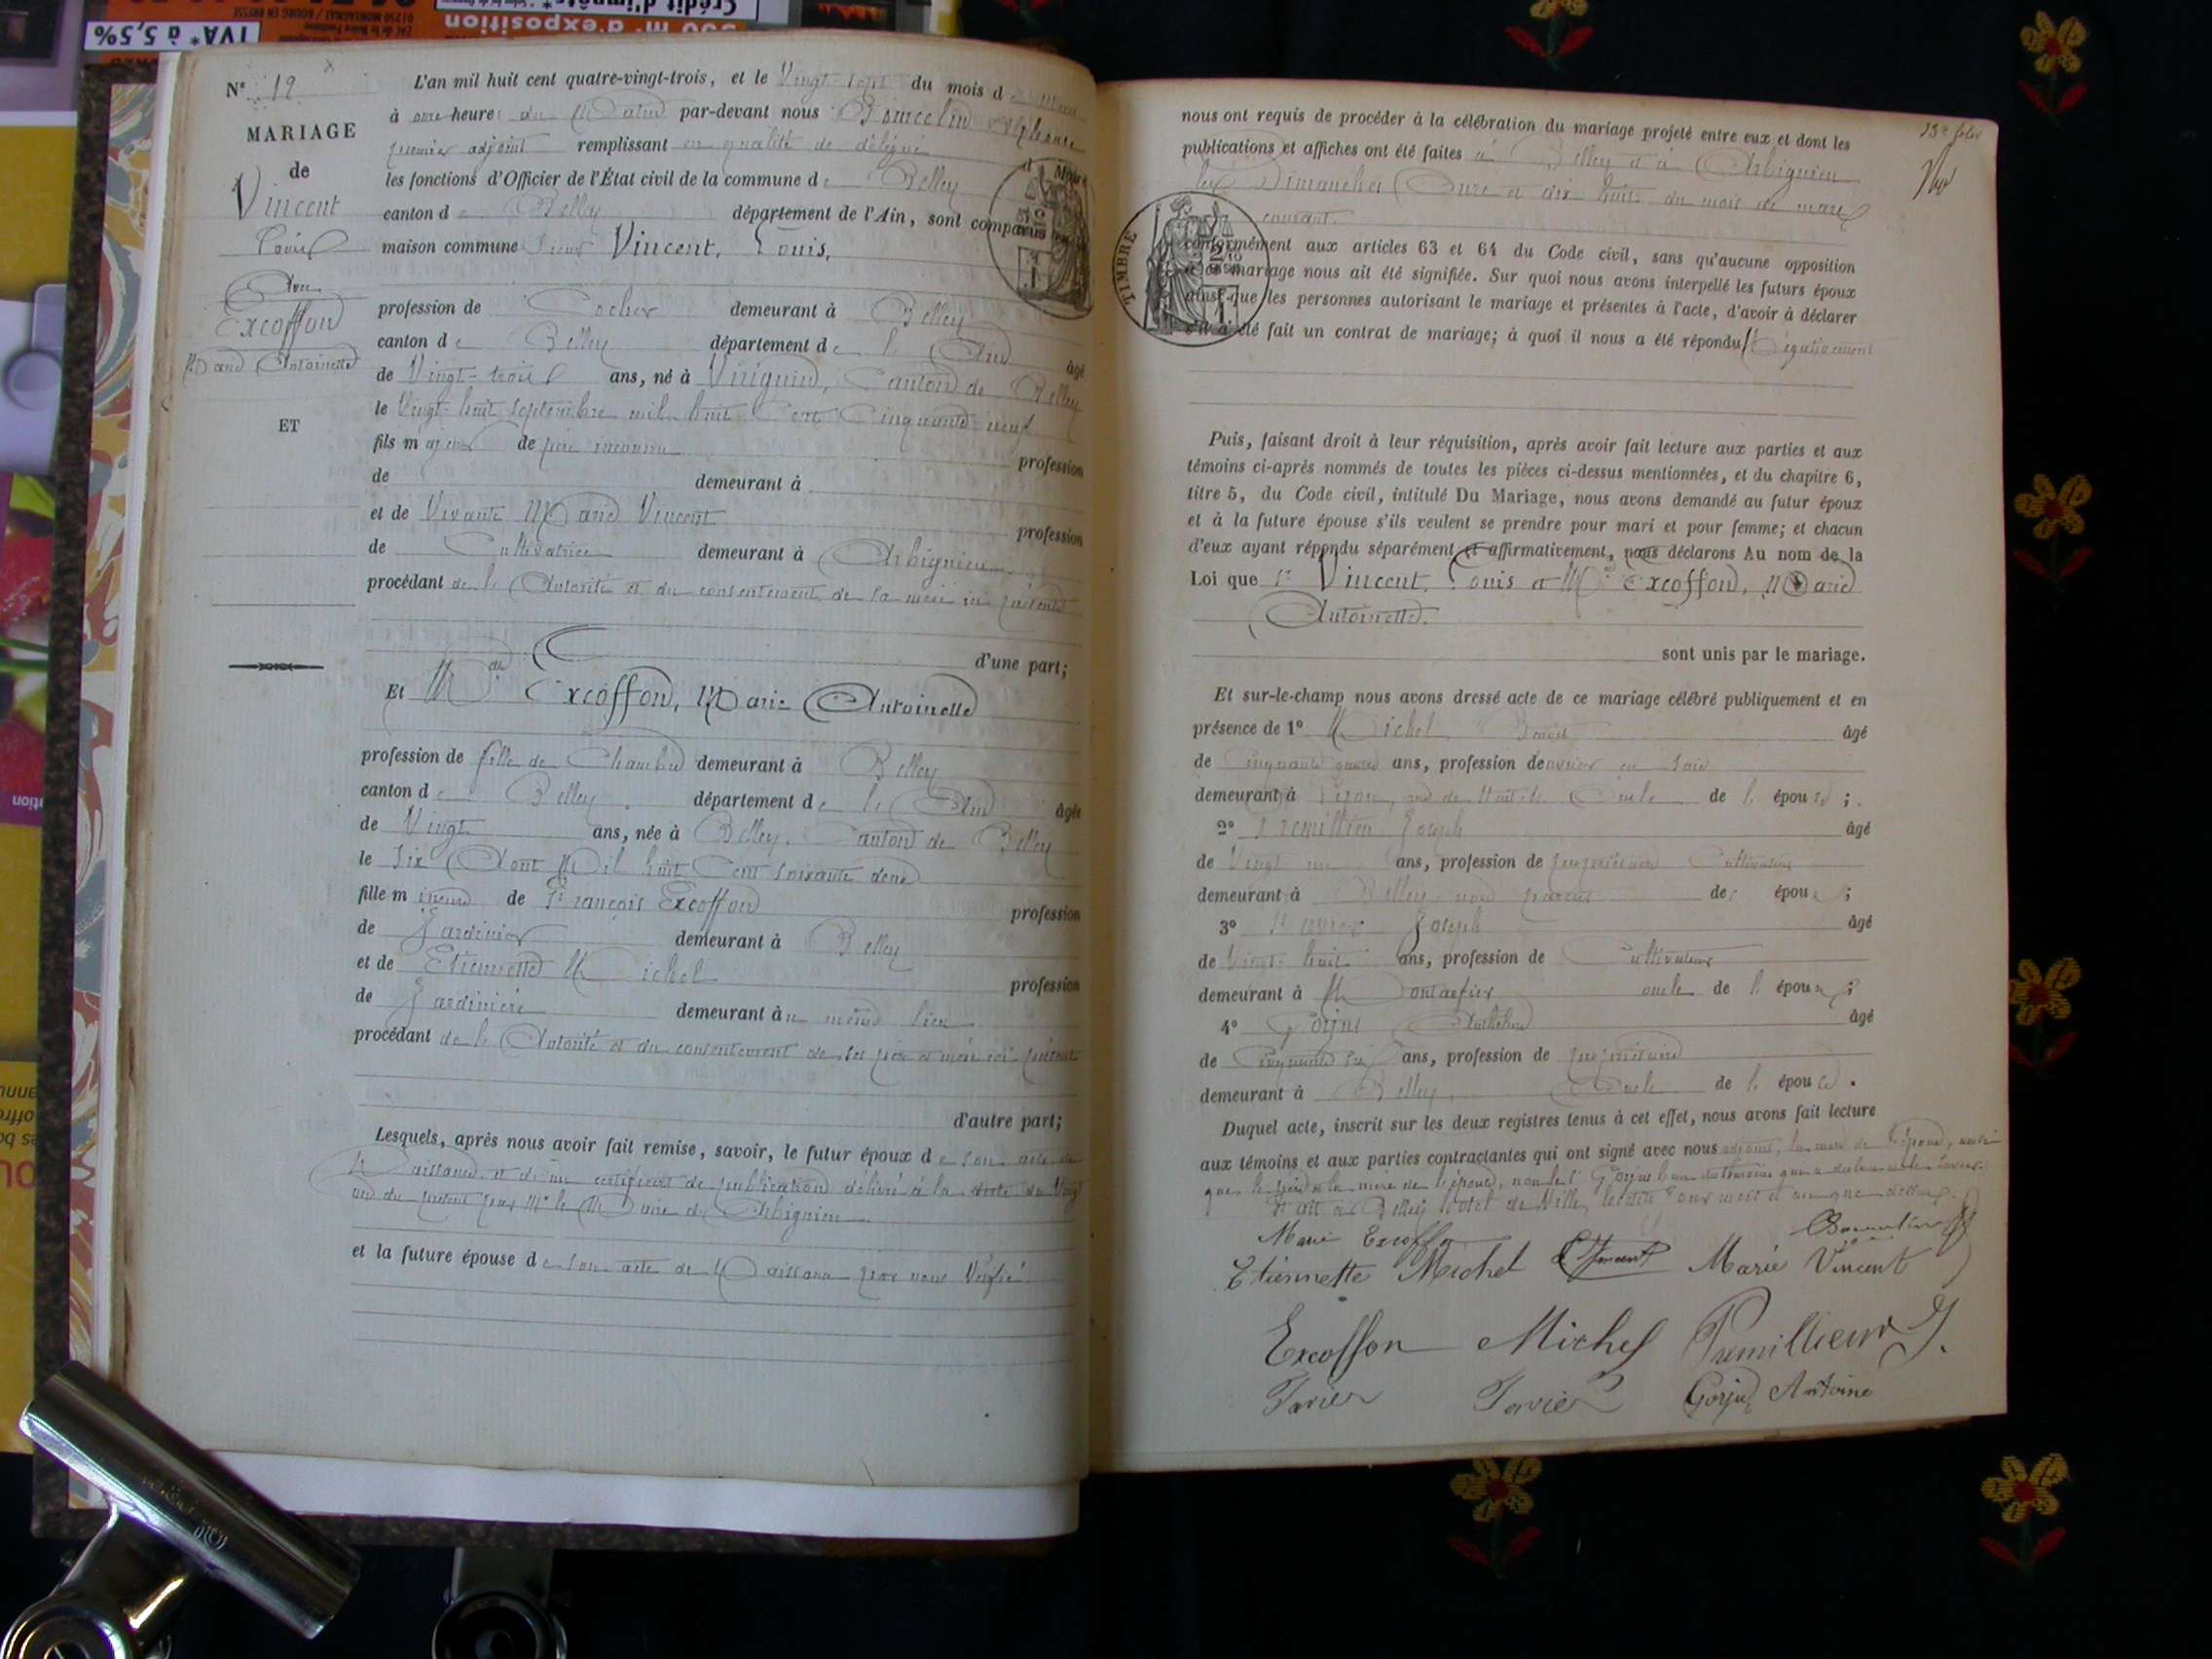 N° 12
MARIAGE
de
Vincent
Louis
Avec
Excoffon
Marie Antoinette
ET
L'an mil huit cent quatre-vingt-trois, et le Vingt-sept du mois de mars
à onze heures du Matin par-devant nous
premier adjoint remplissant en qualité de délégué
les fonctions d'Officier de l'État civil de la commune de Belley
canton de Belley département de l'Ain, sont comparus
maison commune Sieur Vincent, Louis,
profession de Cocher demeurant à Belley
canton de Belley département de l'Ain âgé
de Vingt-trois ans, né à Virignin, Canton de Belley
le Vingt-huit septembre mil huit Cent Cinquante-neuf
fils majeur de père inconnu profession
de demeurant à
et de Vivante Marie Vincent profession
de Cultivatrice demeurant à Arbignieu
procédant de l'Autorité et du consentement de sa mère ici présente
d'une part;
Et Mlle Excoffon, Marie Antoinette
profession de fille de Chambre demeurant à Belley
canton de Belley département de l'Ain âgée
de Vingt ans, née à Belley, Canton de Belley
le Six Août Mil huit Cent soixante deux
fille mineure de François Excoffon profession
de Jardinier demeurant à Belley
et de Etiennette Michel profession
de Jardinière demeurant au même lieu
procédant de l'Autorité et du consentement de ses père et mère ici présents
d'autre part;
Lesquels, après nous avoir fait remise, savoir, le futur époux de son acte de
Naissance et d'un certificat de publication délivré à la date du Vingt
un du présent par Mr le Maire d'Arbignieu
et la future épouse de son acte de Naissance par nous Vérifié
13e folio
nous ont requis de procéder à la célébration du mariage projeté entre eux et dont les
publications et affiches ont été faites à Belley et à Arbignieu
les Dimanches Onze et dix huit du mois de mars
courant
TIMBRE
conformément aux articles 63 et 64 du Code civil, sans qu'aucune opposition
à ce mariage nous ait été signifiée. Sur quoi nous avons interpellé les futurs époux
ainsi que les personnes autorisant le mariage et présentes à l'acte, d'avoir à déclarer
s'il a été fait un contrat de mariage; à quoi il nous a été répondu Négativement
Puis, faisant droit à leur réquisition, après avoir fait lecture aux parties et aux
témoins ci-après nommés de toutes les pièces ci-dessus mentionnées, et du chapitre 6,
titre 5, du Code civil, intitulé Du Mariage, nous avons demandé au futur époux
et à la future épouse s'ils veulent se prendre pour mari et pour femme; et chacun
d'eux ayant répondu séparément et affirmativement, nous déclarons Au nom de la
Loi que Sr Vincent, Louis et Mlle Excoffon, Marie
Antoinette.
sont unis par le mariage.
Et sur-le-champ nous avons dressé acte de ce mariage célébré publiquement et en
présence de 1° Michel, Benoit âgé
de Cinquante quatre ans, profession de ouvrier en soie
demeurant à Lyon, Oncle de l'épouse;
2° Premillieu Joseph âgé
de Vingt un ans, profession de propriétaire Cultivateur
demeurant à Belley non parent des époux;
3° Joseph âgé
de Vingt-huit ans, profession de Cultivateur
demeurant à oncle de l'époux;
4° Gorjus Anthelme âgé
de Cinquante six ans, profession de propriétaire
demeurant à Belley, Oncle de l'épouse.
Duquel acte, inscrit sur les deux registres tenus à cet effet, nous avons fait lecture
aux témoins et aux parties contractantes qui ont signé avec nous adjoint, la mère de l'époux, ainsi
que le père et la mère de l'épouse, non le Sr Gorjus l'un des témoins qui a déclaré ne le savoir.
Fait à Belley hôtel de Ville, les dits jour mois et an que dessus.
Marie Excoffon
Etiennette Michel Vincent Marie Vincent
Excoffon Michel Premillieux J.
Tavier Tavier Gorjus Antoine
TVA* à 5,5%
Crédit d'impôts*
m² d'exposition